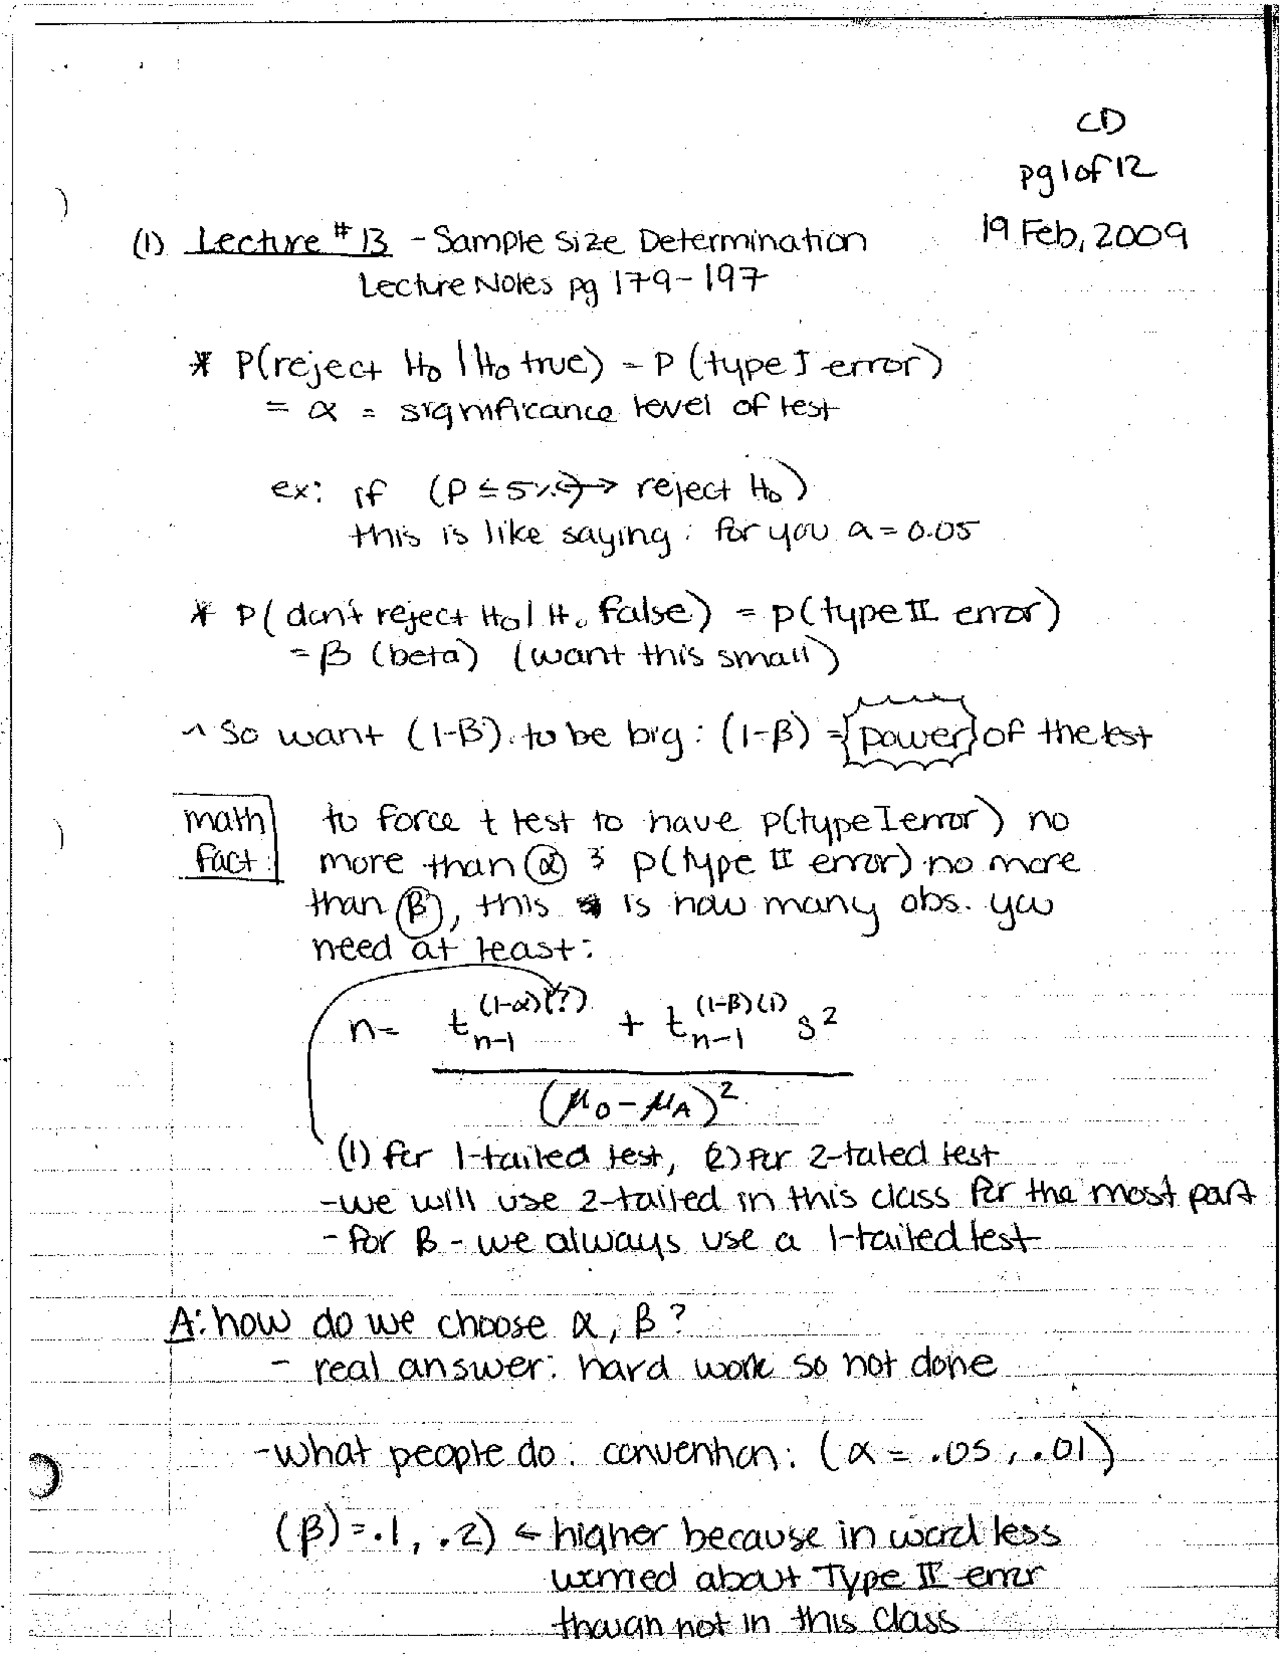 CD
pg 1 of 12
19 Feb, 2009
(1) Lecture #13 - Sample Size Determination
Lecture Notes pg 179-197
* P(reject H₀ | H₀ true) = P(type I error)
= α = significance level of test
ex: if (P ≤ 5% ↔ reject H₀)
this is like saying: for you α = 0.05
* P(don't reject H₀ | H₀ false) = p(type II error)
= β (beta) (want this small)
^ So want (1-β) to be big: (1-β) = {power} of the test
math fact: to force t test to have p(type I error) no
more than α & p(type II error) no more
than β, this is how many obs. you
need at least:
n = t_{n-1}^{(1-α)(?)} + t_{n-1}^{(1-β)(1)} s²
(μ₀ - μ_A)²
(1) for 1-tailed test, (2) for 2-tailed test
- we will use 2-tailed in this class for the most part
- for β - we always use a 1-tailed test
A: how do we choose α, β?
- real answer: hard work so not done
- what people do: convention: (α = .05, .01)
(β) = .1, .2) ← higher because in world less
worried about Type II error
though not in this class